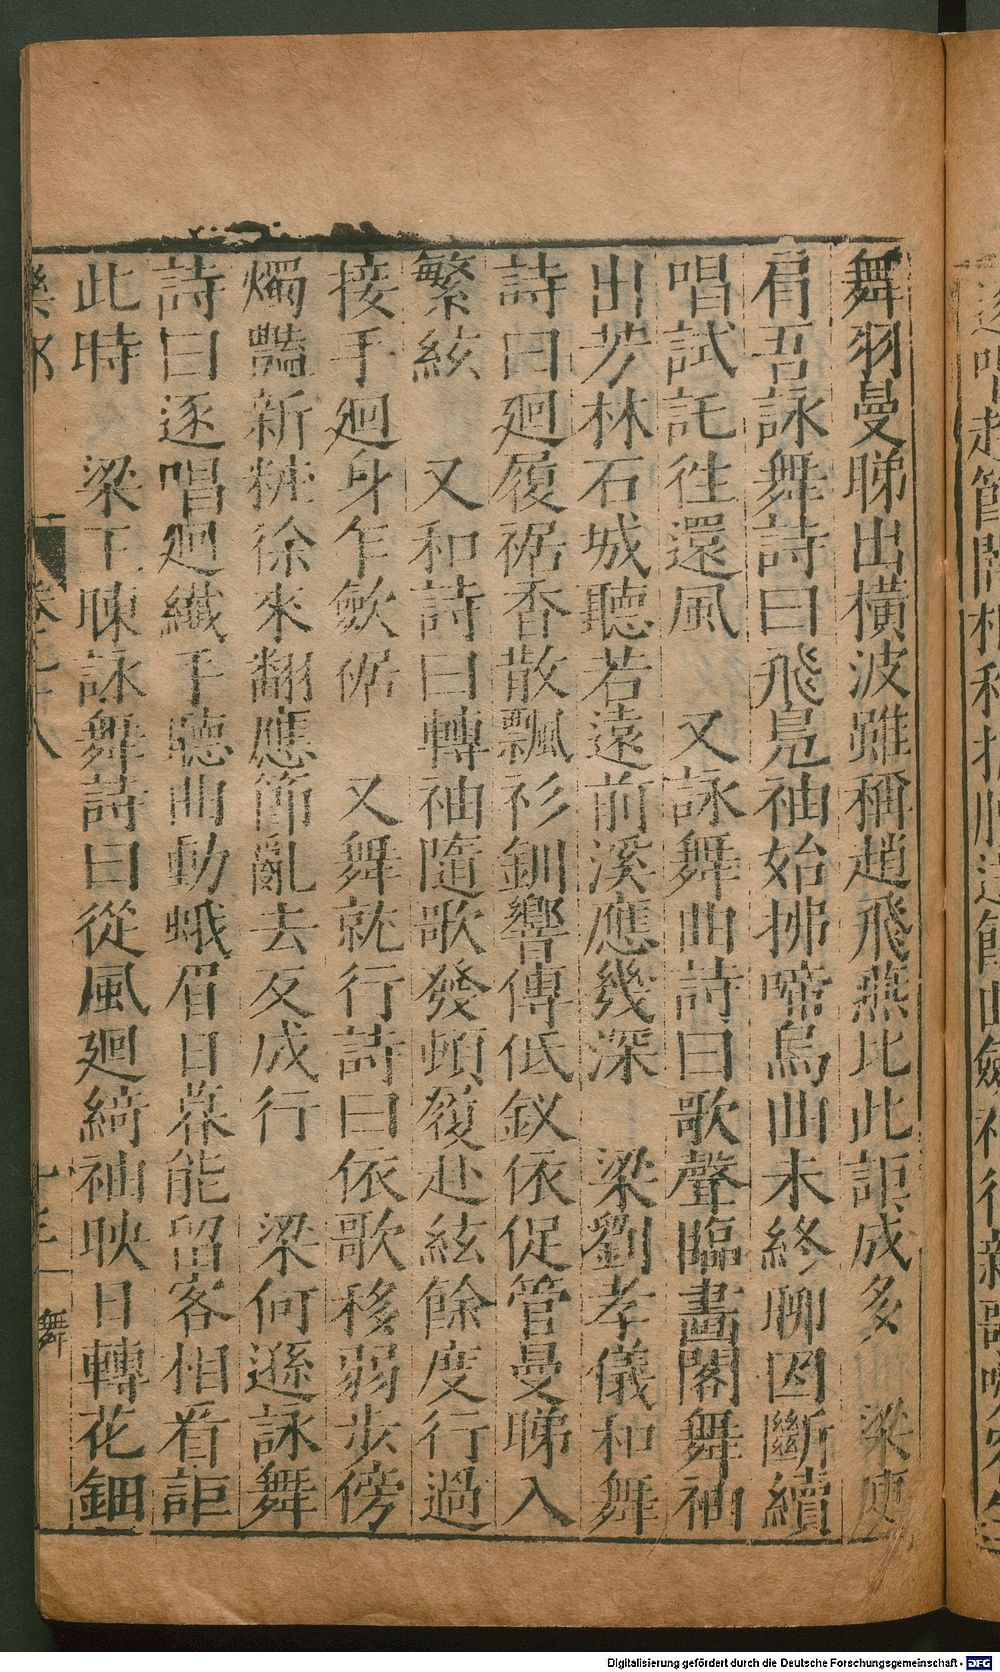 舞羽曼睇出橫波雖稱趙飛燕比此詎成多　梁庾
肩吾詠舞詩曰飛鳬袖始拂啼烏曲未終聊因斷續
唱試託徃還風　又詠舞曲詩曰歌聲臨畫閣舞袖
出芳林石城聽若遠前溪應幾深　梁劉孝儀和舞
詩曰廻履裾香散飄衫釧響傳低釵依促管曼睇入
繁絃　又和詩曰轉袖隨歌發頓履赴絃餘度行過
接手廻身乍斂裾　又舞就行詩曰依歌移弱步傍
燭豔新粧徐來翻應節亂去反成行　梁何遜詠舞
詩曰逐唱廻纎手聽曲動蛾眉日暮能留客相看詎
此時　梁王暕詠舞詩曰從風廻綺袖映日轉花鈿
舞
Digitalisierung gefördert durch die Deutsche Forschungsgemeinschaft - DFG